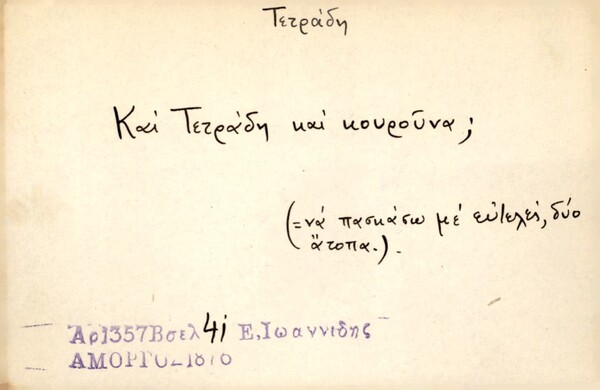 Τετράδη
Καί Τετράδη καί κουρούνα;
(=νά πασκάσω μέ εὐτελές, δύο
ἄτοπα.).
Αρ1357Βσελ 41 Ε,Ιωαννιδης
ΑΜΟΡΓΟΣ1876